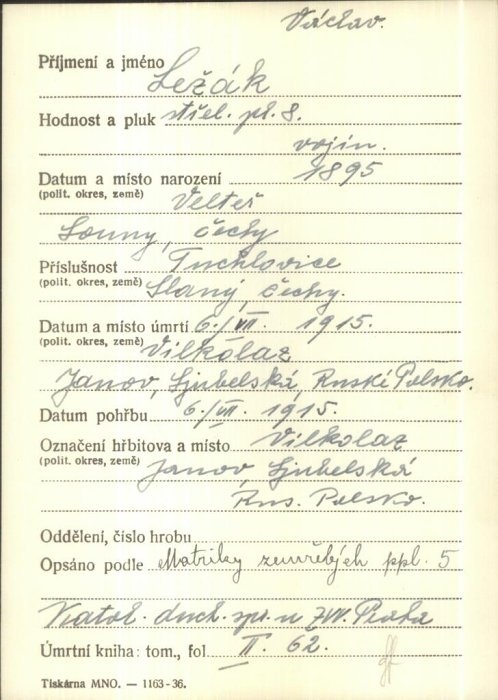 Václav.
Příjmení a jméno Ležák
Hodnost a pluk střel. pl. 8.
vojín.
Datum a místo narození 1895
(polit. okres, země) Velteř
Louny, Čechy
Příslušnost Tuchlovice
(polit. okres, země) Slaný, Čechy.
Datum a místo úmrtí 6./VII. 1915.
(polit. okres, země) Vilkólaz
Janov, Ljubelská, Ruské Polsko.
Datum pohřbu 6./VII. 1915.
Označení hřbitova a místo Vilkolaz
(polit. okres, země) Janov, Ljubelská
Rus. Polsko.
Oddělení, číslo hrobu
Opsáno podle Matriky zemřelých ppl. 5
Katol. duch. spr. u ZVV. Praha
Úmrtní kniha: tom., fol. II. 62.
Tiskárna MNO. — 1163-36.